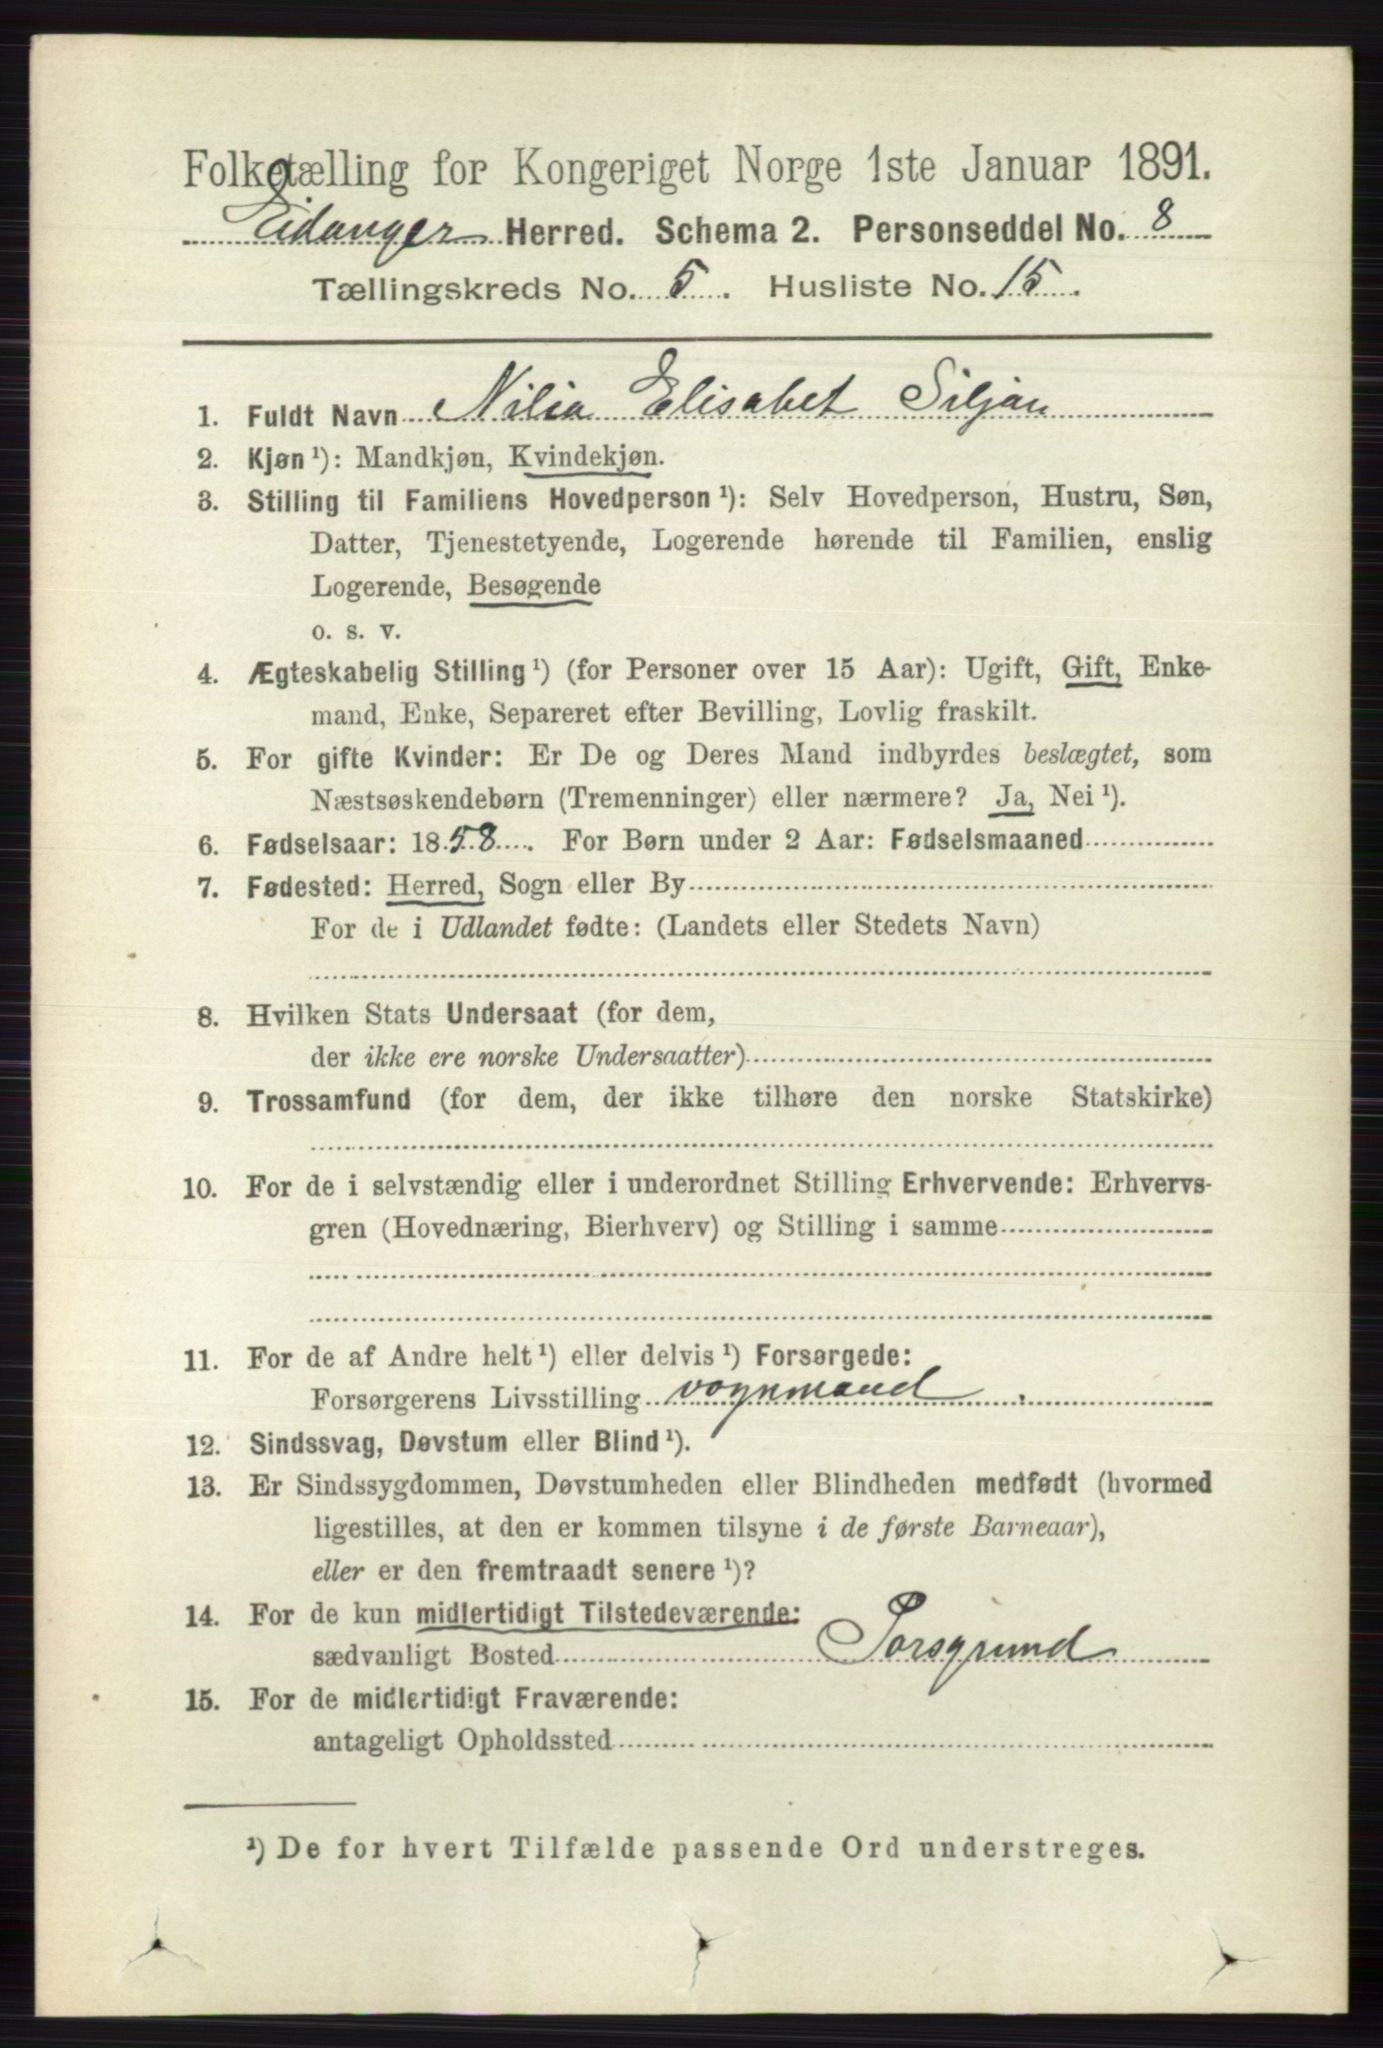 Folketælling for Kongeriget Norge 1ste Januar 1891.
Eidanger Herred. Schema 2. Personseddel No. 8
Tællingskreds No. 5. Husliste No. 15.
1. Fuldt Navn Nilia Elisabet Siljan
2. Kjøn¹): Mandkjøn, Kvindekjøn.
3. Stilling til Familiens Hovedperson¹): Selv Hovedperson, Hustru, Søn,
Datter, Tjenestetyende, Logerende hørende til Familien, enslig
Logerende, Besøgende
o. s. v.
4. Ægteskabelig Stilling¹) (for Personer over 15 Aar): Ugift, Gift, Enke-
mand, Enke, Separeret efter Bevilling, Lovlig fraskilt.
5. For gifte Kvinder: Er De og Deres Mand indbyrdes beslægtet, som
Næstsøskendebørn (Tremenninger) eller nærmere? Ja, Nei¹).
6. Fødselsaar: 1858. For Børn under 2 Aar: Fødselsmaaned
7. Fødested: Herred, Sogn eller By
For de i Udlandet fødte: (Landets eller Stedets Navn)
8. Hvilken Stats Undersaat (for dem,
der ikke ere norske Undersaatter)
9. Trossamfund (for dem, der ikke tilhøre den norske Statskirke)
10. For de i selvstændig eller i underordnet Stilling Erhvervende: Erhvervs-
gren (Hovednæring, Bierhverv) og Stilling i samme
11. For de af Andre helt¹) eller delvis¹) Forsørgede:
Forsørgerens Livsstilling vognmand
12. Sindssvag, Døvstum eller Blind¹).
13. Er Sindssygdommen, Døvstumheden eller Blindheden medfødt (hvormed
ligestilles, at den er kommen tilsyne i de første Barneaar),
eller er den fremtraadt senere¹)?
14. For de kun midlertidigt Tilstedeværende:
sædvanligt Bosted Porsgrund
15. For de midlertidigt Fraværende:
antageligt Opholdssted
¹) De for hvert Tilfælde passende Ord understreges.